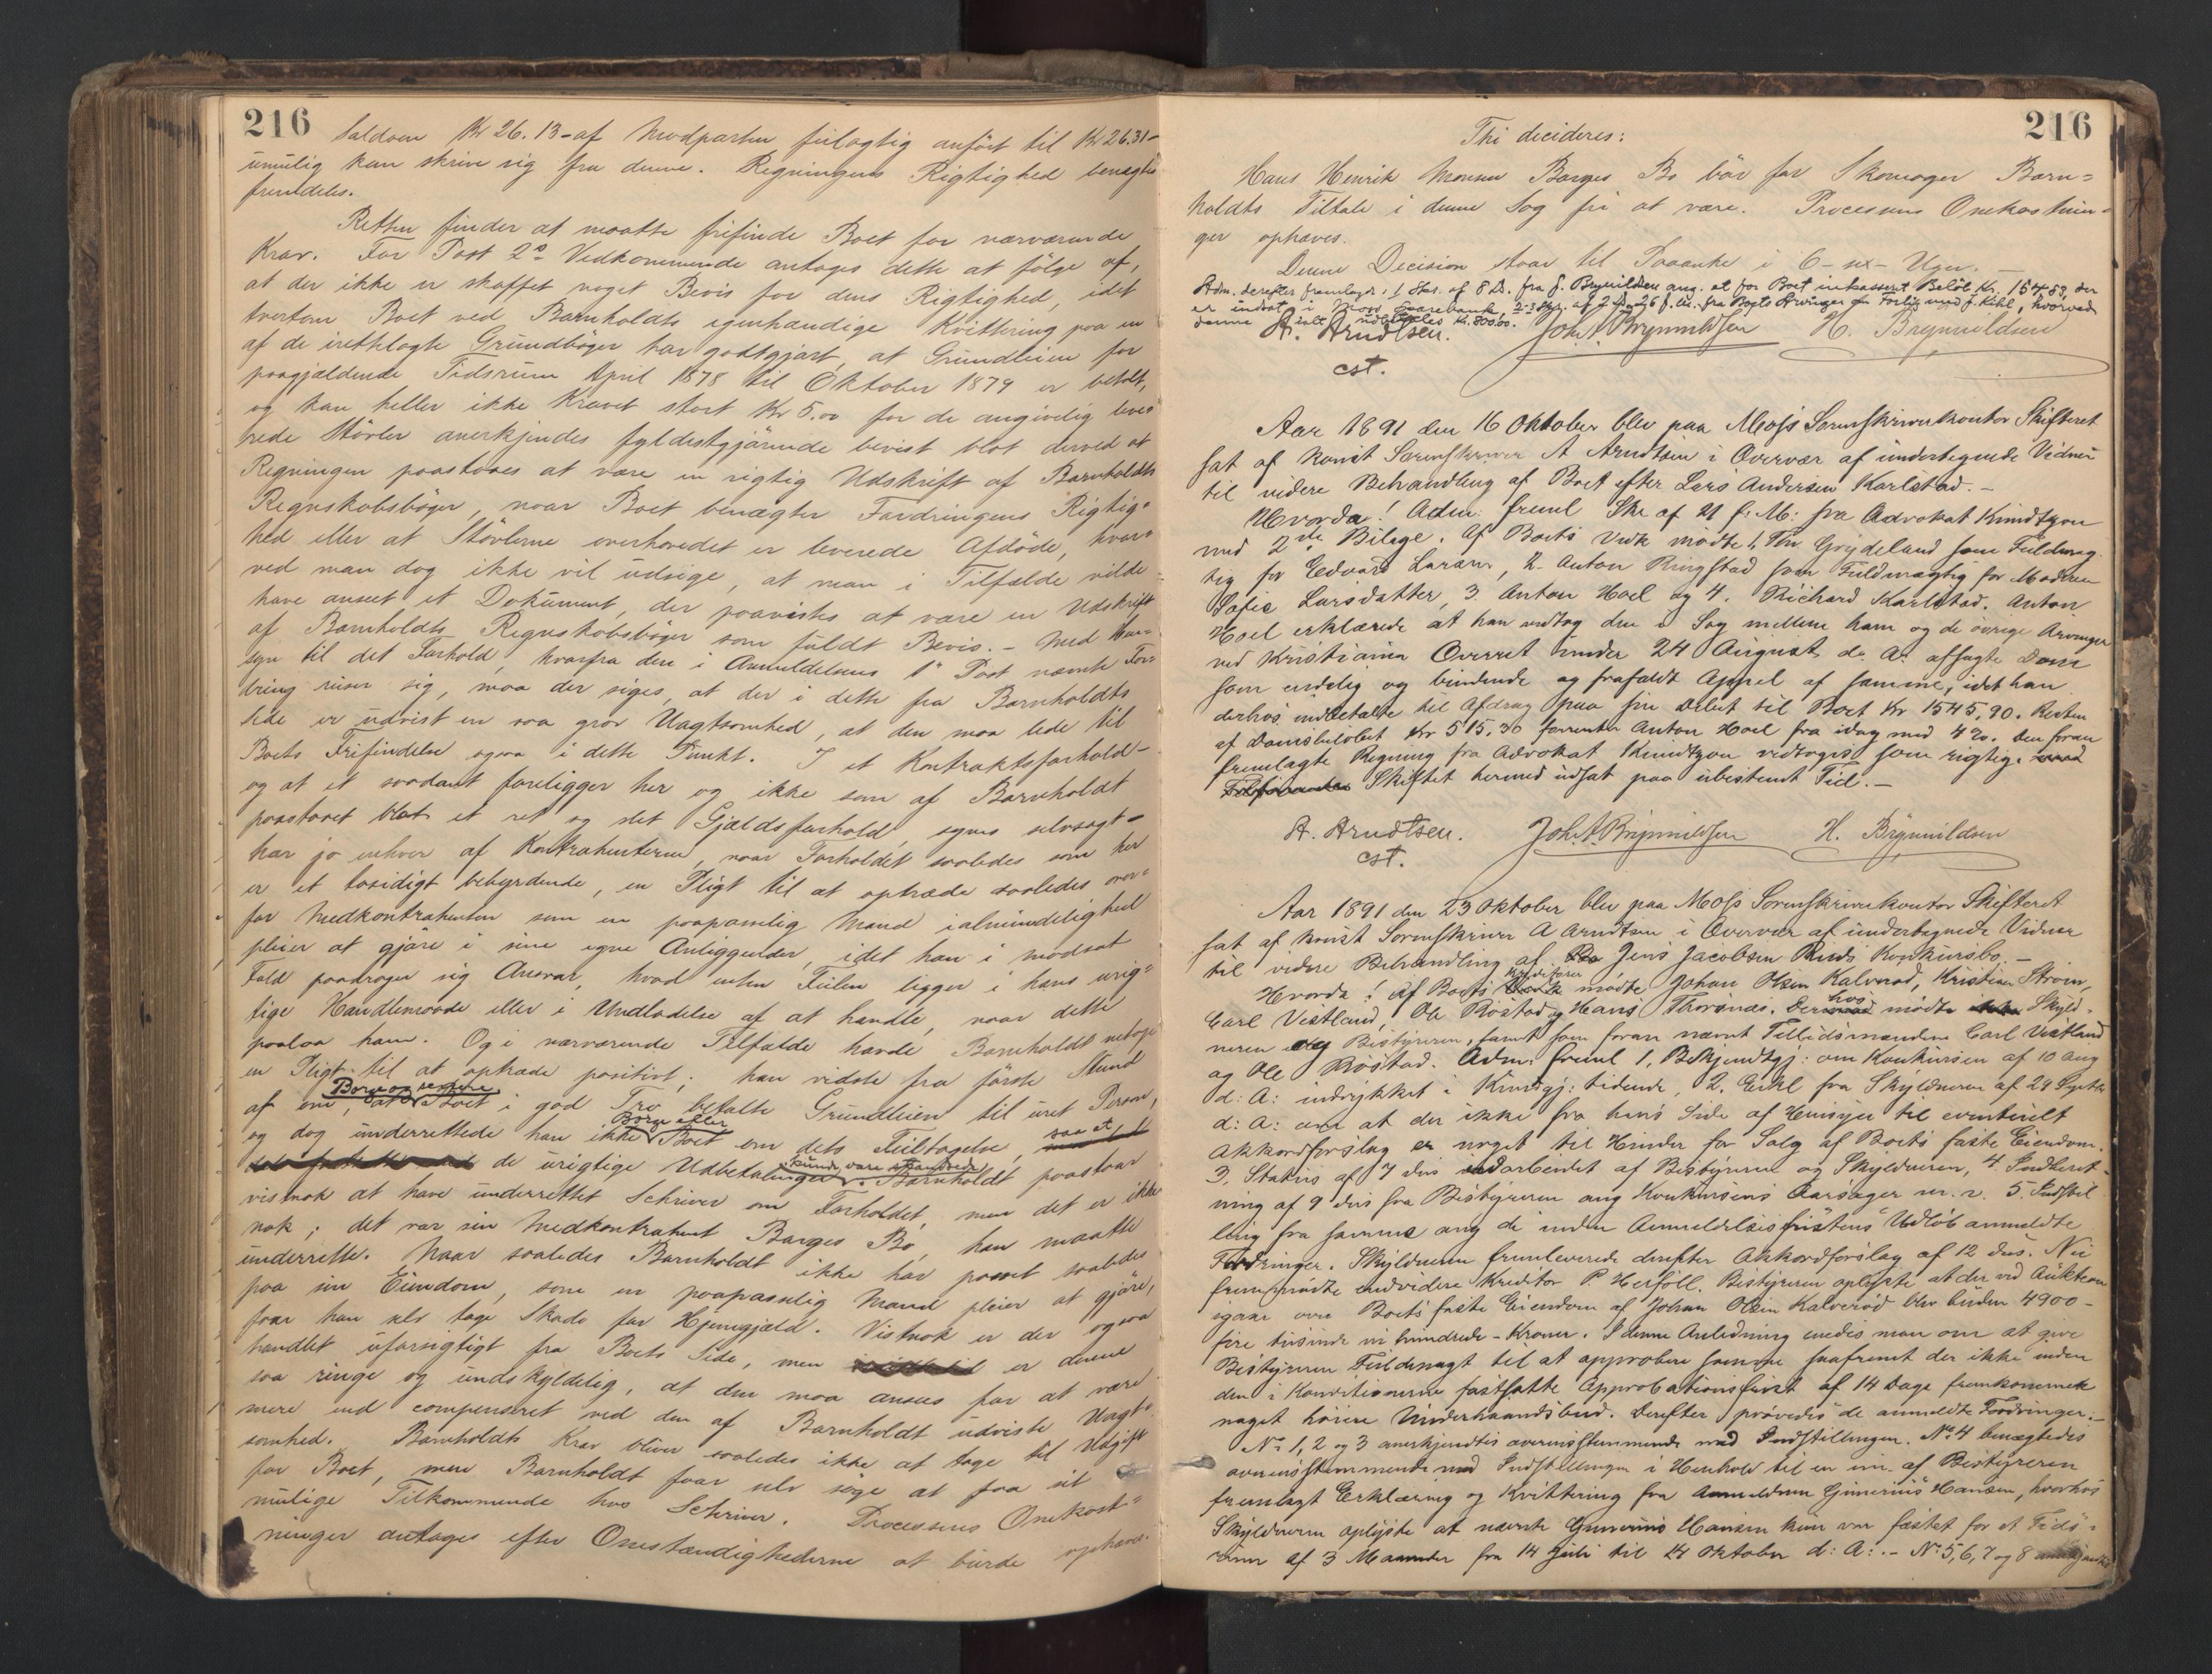 216
Saldoen Kr 26.13 - af Modparten feilagtig anført til Kr 26.31 -
umulig kan skrive sig fra denne. Regningens Rigtighed benægtes
fremdeles.
Retten finder at maatte frifinde Boet for nærværende
Krav. For Post 2s Vedkommende antages dette at følge af,
at der ikke er skaffet noget Bevis for dens Rigtighed, idet
tvertom Boet ved Barnholdts egenhændige Kvittering paa en
af de irettelagte Grundbøger har godtgjort, at Grundleien for
paagjældende Tidsrum April 1878 til Oktober 1879 er betalt,
og kan heller ikke Kravet stort Kr 5.00 for de angivelig leve-
rede Støvler anerkjendes fyldestgjørende bevist blot derved at
Regningen paastaaes at være en rigtig Udskrift af Barnholdts
Regnskabsbøger, naar Boet benægter Fordringens Rigtig=
hed eller at Støvlerne overhovedet er leverede Afdøde, hvor=
ved man dog ikke vil udsige, at man i Tilfælde vilde
have anseet et Dokument, der paavistes at være en Udskrift
af Barnholdts Regnskabsbøger som fuldt Bevis. - Med Hen=
syn til det Forhold, hvorfra den i Anmeldelsens 1ste Post nævnte For=
dring reiser sig, maa der siges, at der i dette fra Barnholdts
Side er udvist en saa grov Uagtsomhed, at den maa lede til
Boets Frifindelse ogsaa i dette Punkt. I et Kontraktsforhold -
og at et saadant foreligger her og ikke som af Barnholdt
paastaaet blot et ret og slet Gjældsforhold, synes selvsagt -
har jo enhver af Kontrahenterne, naar Forholdet saaledes som her
er et tosidigt bebyrdende, en Pligt til at optræde saaledes over=
for Medkontrahenten som en paapasselig Mand i almindelighed
pleier at gjøre i sine egne Anliggender, idet han i modsat
Fald paadrager sig Ansvar, hvad enten Feilen ligger i hans urig=
tige Handlemaade eller i Undladelse af at handle, naar dette
paalaa ham. Og i nærværende Tilfælde havde Barnholdt netop
en Pligt til at optræde positivt; han vidste fra første Stund
Borge og senere
af om, at Boet i god Tro betalte Grundleien til uret Person,
Borge eller
og dog underrettede han ikke Boet om dets Feiltagelse, saa at
de urigtige Udbetalinger kunde være standsede. Barnholdt paastaar
vistnok at have underrettet Schriver om Forholdet, men det er ikke
nok; det var sin Medkontrahent Borges Bo, han maatte
underrette. Naar saaledes Barnholdt ikke har passet saaledes
paa sin Eiendom, som en paapasselig Mand pleier at gjøre,
faar han selv tage Skade for Hjemgjæld. Vistnok er der ogsaa
handlet uforsigtigt fra Boets Side, men er denne
saa ringe og undskyldelig, at den maa ansees for at være
mere end compenseret ved den af Barnholdt udviste Uagt=
somhed. Barnholdts Krav bliver saaledes ikke at tage til Udgift
for Boet, men Barnholdt faar selv søge at faa sit
mulige Tilkommende hos Schriver. Processens Omkost=
ninger antages efter Omstændighederne at burde ophæves.
216
Thi decideres:
Hans Henrik Monsen Borges Bo bør for Skomager Barn=
holdts Tiltale i denne Sag fri at være. Processens Omkostnin=
ger ophæves.
Denne Decision staar til Paaanke i 6 - sex - Uger. -
Adm. derefter fremlagde: 1 Skr. af 8 ds. fra J. Brynildsen ang. at for Boet inkasseret Beløb Kr. 154.53, der
er indsat i Moss Sparebank, 2-3 Skr. af 2 og 26 f. M. fra Boets Arvinger om Forlig med J. Kihl, hvorved
denne ialt udbetales Kr. 800.00.
A. Arndtsen. Joh. A. Brynildsen H. Brynildsen
cst.
Aar 1891 den 16 Oktober blev paa Moss Sorenskriverkontor Skifteret
sat af konst Sorenskriver A Arndtsen i Overvær af undertegnede Vidner
til videre Behandling af Boet efter Lars Andersen Karlstad. -
Hvorda! Adm: freml Skr af 21 f: M: fra Advokat Knudtzon
med 2de Bilage. Af Boets Vedk mødte 1. Grydeland som Fuldmæg-
tig for Edvard Larsen, 2. Anton Ringstad som Fuldmægtig for Moderen
Sofie Larsdatter, 3. Anton Hoel og 4. Richard Karlstad. Anton
Hoel erklærede at han vedtog den i Sag mellem ham og de øvrige Arvinger
ved Kristiania Overret under 24 August d. A. afsagte Dom
som endelig og bindende og frafaldt Appel af samme, idet han
derhos indbetalte til Afdrag paa sin Debet til Boet Kr 1545,90. Resten
af Domsbeløbet Kr 515,30 forrenter Anton Hoel fra idag med 4%. Den foran
fremlagte Regning fra Advokat Knudtzon vedtoges som rigtig.
Skiftet hermed udsat paa ubestemt Tid. -
A. Arndtsen. Joh. A. Brynildsen H. Brynildsen
cst.
Aar 1891 den 23 Oktober blev paa Moss Sorenskriverkontor Skifteret
sat af konst Sorenskriver A Arndtsen i Overvær af undertegnede Vidner
til videre Behandling af Jens Jacobsen Ruds Konkursbo. -
Kreditorer
Hvorda! Af Boets mødte Johan Olsen Kalverød, Kristian Strøm,
Carl Vestland, Ole Røstad og Hans Thorsnæs. Derhos mødte Skyld-
neren og Bestyreren, samt som foran nævnt Tillidsmændene Carl Vestland
og Ole Røstad. Adm: freml 1, Bekjendtgj: om Konkursen af 10 Aug
d: A: indrykket i Kundgj: tidende, 2. Erkl fra Skyldneren af 29 Septbr
d: A: om at der ikke fra hans Side af Hensyn til eventuelt
Akkordforslag er noget til Hinder for Salg af Boets faste Eiendom.
3. Status af 7 ds udarbeidet af Bestyreren og Skyldneren, 4. Indberet-
ning af 9 ds fra Bestyreren ang Konkursens Aarsager m. v. 5. Indstil
ling fra samme ang de inden Anmeldelsesfristens Udløb anmeldte
Fordringer. Skyldneren fremleverede derefter Akkordforslag af 12 ds. Nu
fremmødte endvidere Kreditor P Herføll. Bestyreren oplyste at der ved Auktion
igaar over Boets faste Eiendom af Johan Olsen Kalverød blev buden 4900 -
fire tusinde ni hundrede - Kroner. I denne Anledning enedes man om at give
Bestyreren Fuldmagt til at approbere samme saafremt der ikke inden
den i Konditionerne fastsatte Approbationsfrist af 14 Dage fremkommer
noget høiere Underhaandsbud. Derefter prøvedes de anmeldte Fordringer. -
No 1, 2 og 3 anerkjendtes overensstemmende med Indstillingen. No 4 benægtedes
overensstemmende med Indstillingen i Henhold til en af Bestyreren
fremlagt Erklæring og Kvittering fra Anmelderen Gunerius Hansen, hvorhos
Skyldneren oplyste at nævnte Gunerius Hansen kun var fæstet for et Tids-
rum af 3 Maaneder fra 14 Juli til 14 Oktober d: A: . - No 5, 6, 7 og 8 anerkjendtes